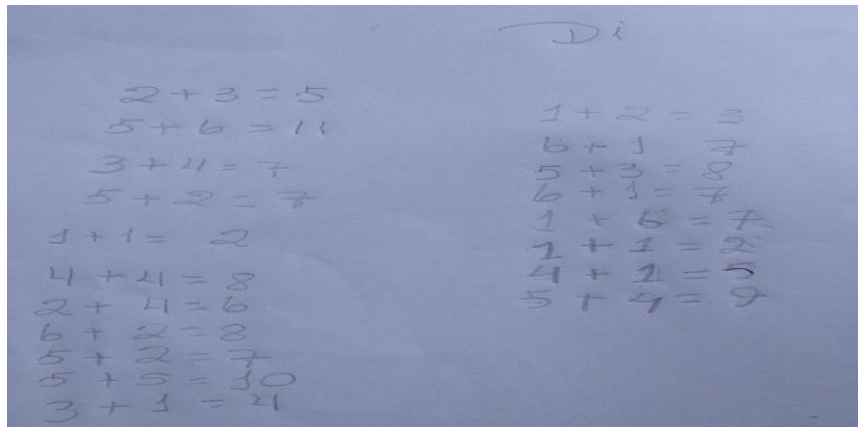 2 + 3 = 5
5 + 6 = 11
3 + 4 = 7
5 + 2 = 7
1 + 1 = 2
4 + 4 = 8
2 + 4 = 6
6 + 2 = 8
5 + 2 = 7
5 + 5 = 10
3 + 1 = 4
Di
1 + 2 = 3
6 + 1 7
5 + 3 = 8
6 + 1 = 7
1 + 6 = 7
1 + 1 = 2
4 + 1 = 5
5 + 4 = 9